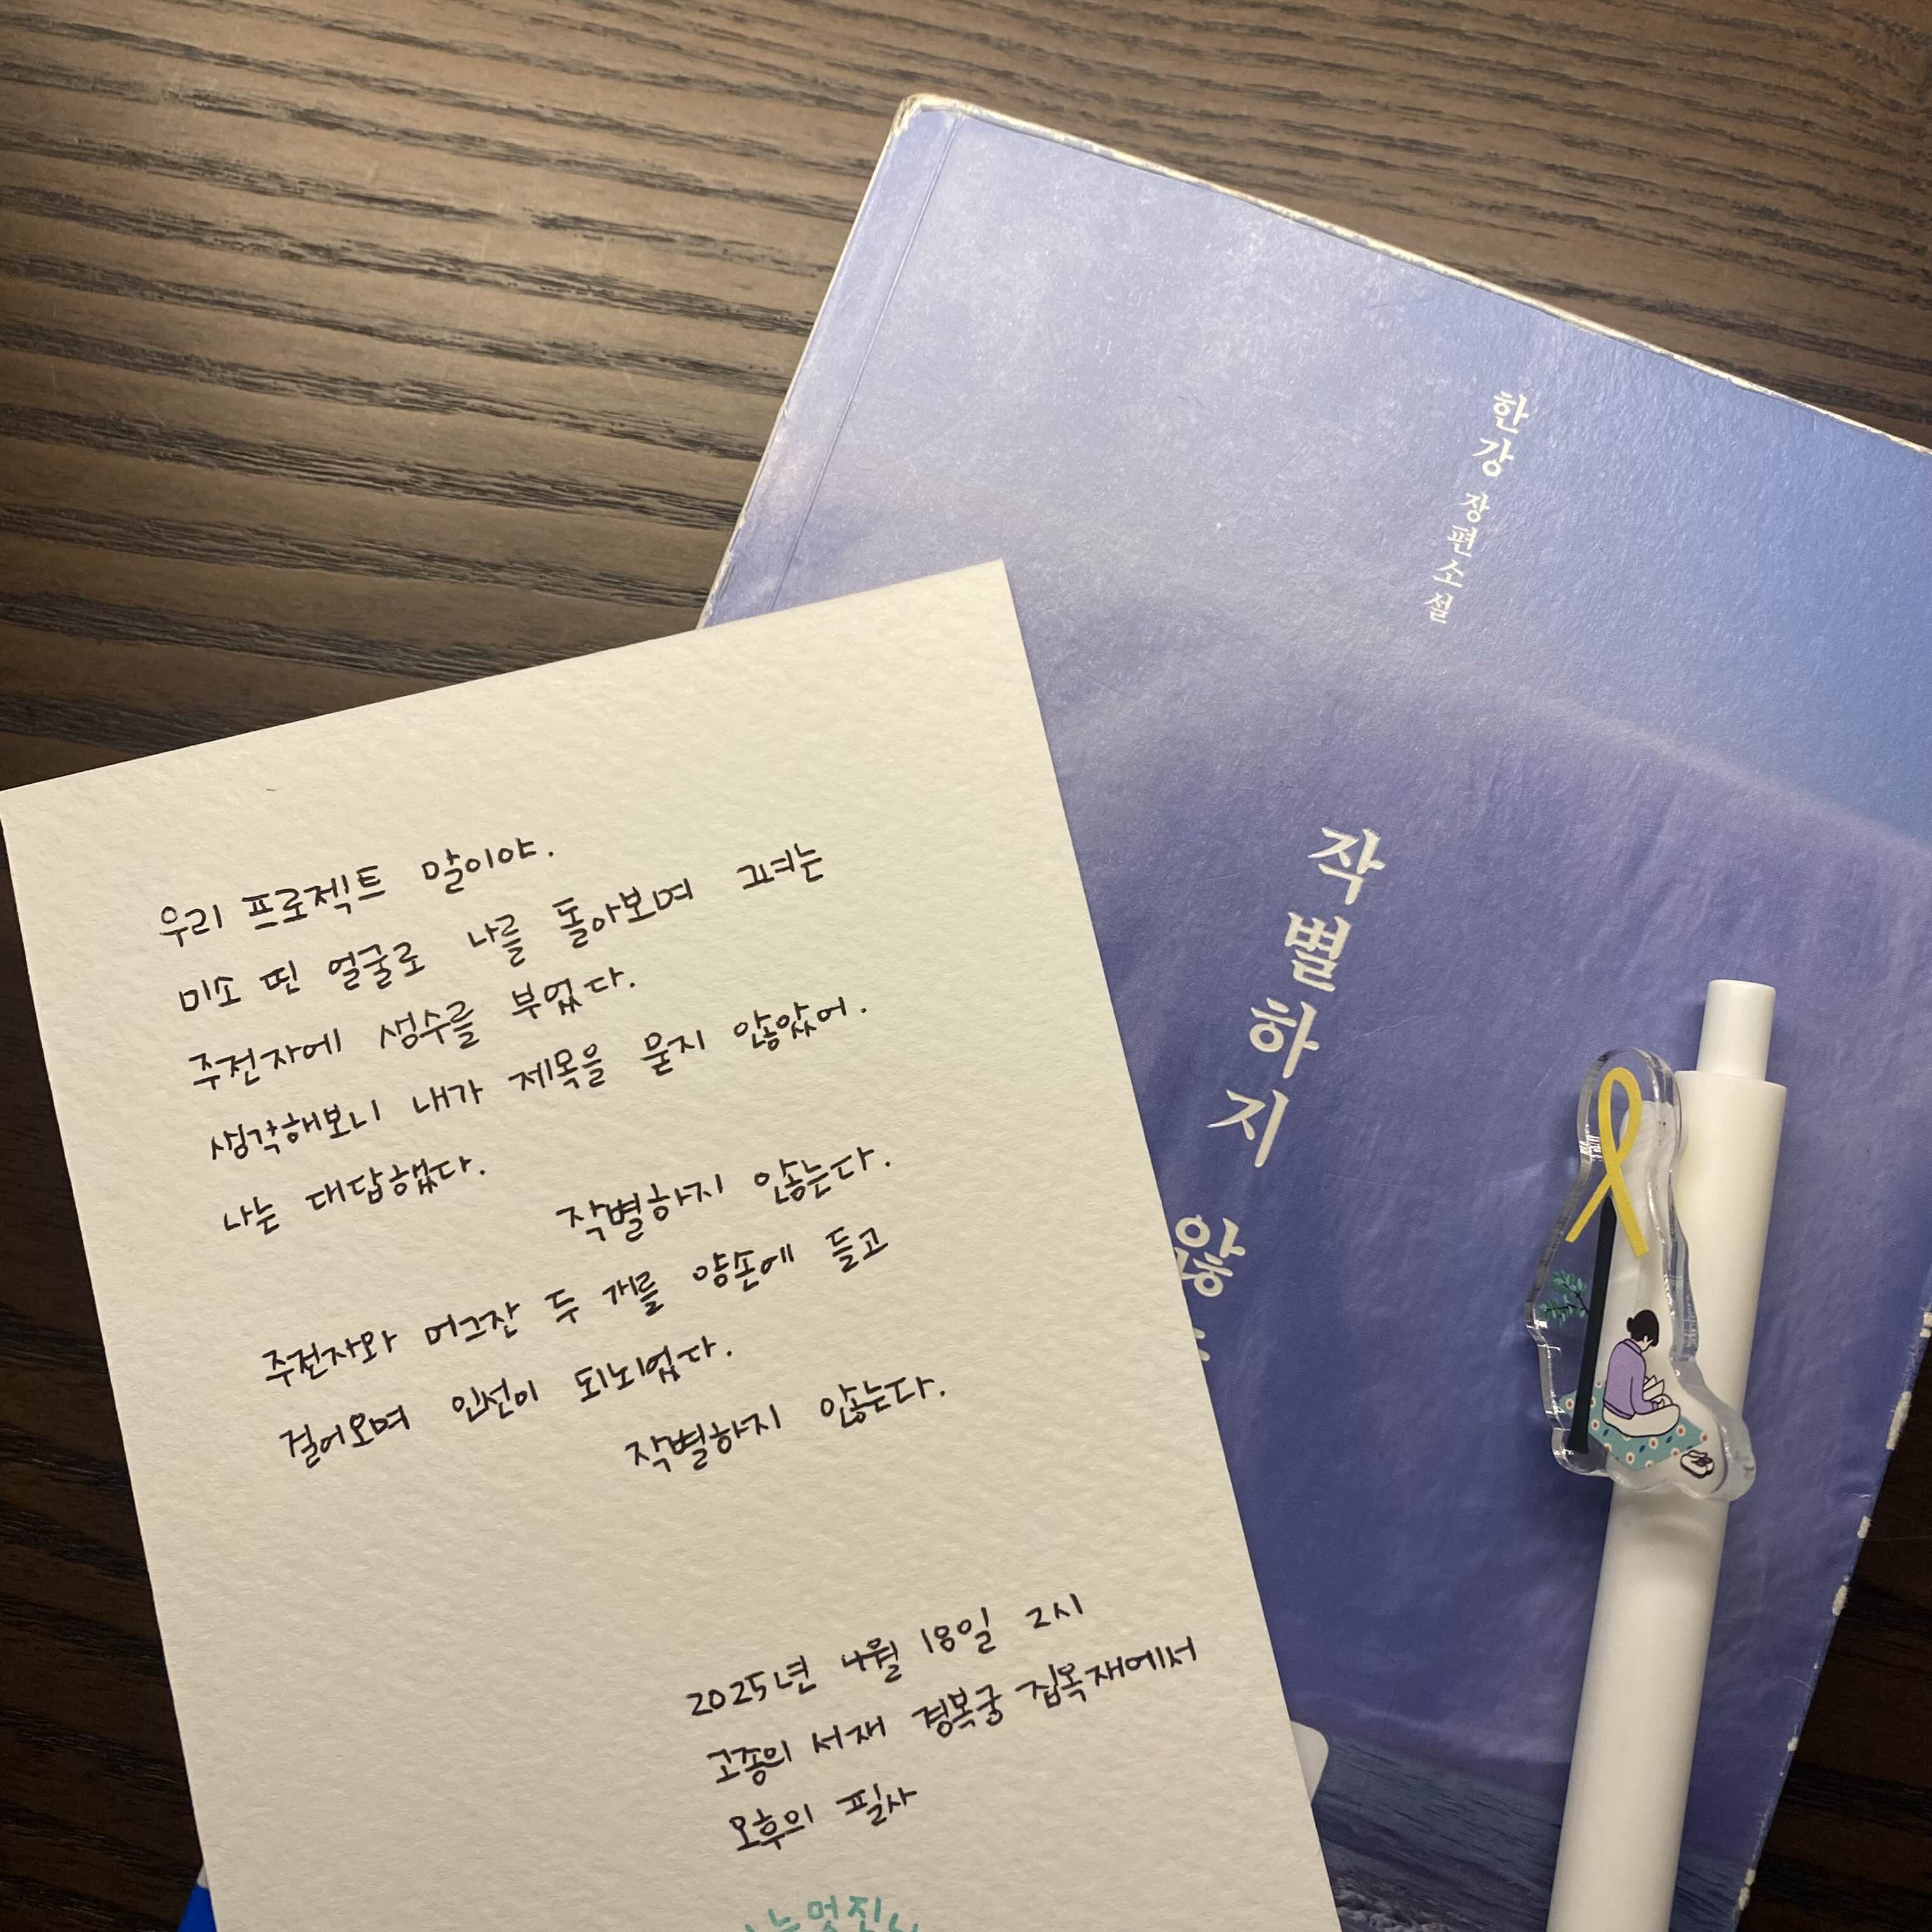 한강 장편소설
작별하지
않
우리 프로젝트 말이야.
미소 띤 얼굴로 나를 돌아보며 그녀는
주전자에 생수를 부었다.
생각해보니 내가 제목을 묻지 않았어.
나는 대답했다.
작별하지 않는다.
주전자와 머그잔 두 개를 양손에 들고
걸어오며 인선이 되뇌었다.
작별하지 않는다.
2025년 4월 18일 2시
고종의 서재 경복궁 집옥재에서
오후의 필사
멋진